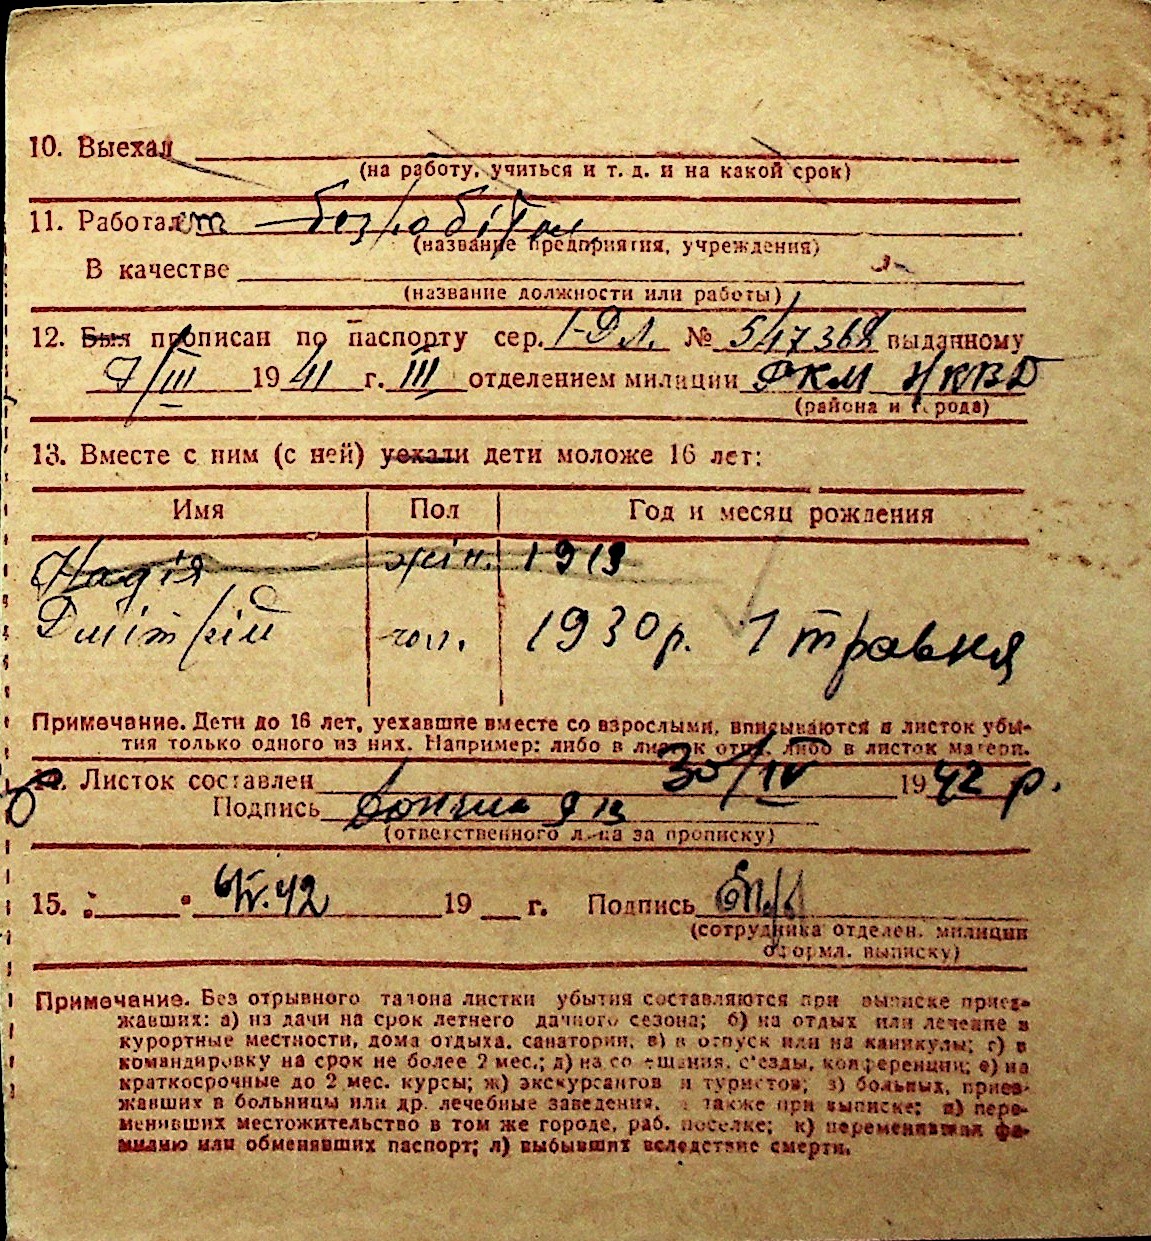 10. Выехал
(на работу, учиться и т. д. и на какой срок)
11. Работает безробітн
(название предприятия, учреждения)
В качестве
(название должности или работы)
12. Был прописан по паспорту сер. 1-ДЛ. № 547368 выданному
7/III 1941 г. III отделением милиции РКМ НКВД
(района и города)
13. Вместе с ним (с ней) уехали дети моложе 16 лет:
Имя Пол Год и месяц рождения
Надія жін. 1913
Дмітрій чол. 1930 р. 1 травня
Примечание. Дети до 16 лет, уехавшие вместе со взрослыми, вписываются в листок убы-
тия только одного из них. Например: либо в листок отца, либо в листок матери.
14. Листок составлен 30/IV 1942 р.
Подпись
(ответственного лица за прописку)
15. 6/V.42 19 г. Подпись
(сотрудника отделен. милиции
оформл. выписку)
Примечание. Без отрывного талона листки убытия составляются при выписке приез-
жавших: а) из дачи на срок летнего дачного сезона; б) на отдых или лечение в
курортные местности, дома отдыха, санатории, в) в отпуск или на каникулы; г) в
командировку на срок не более 2 мес.; д) на совещания, с'езды, конференции; е) на
краткосрочные до 2 мес. курсы; ж) экскурсантов и туристов; з) больных, приез-
жавших в больницы или др. лечебные заведения, а также при выписке; и) пере-
менивших местожительство в том же городе, раб. поселке; к) переменивших фа-
милию или обменявших паспорт; л) выбывших вследствие смерти.